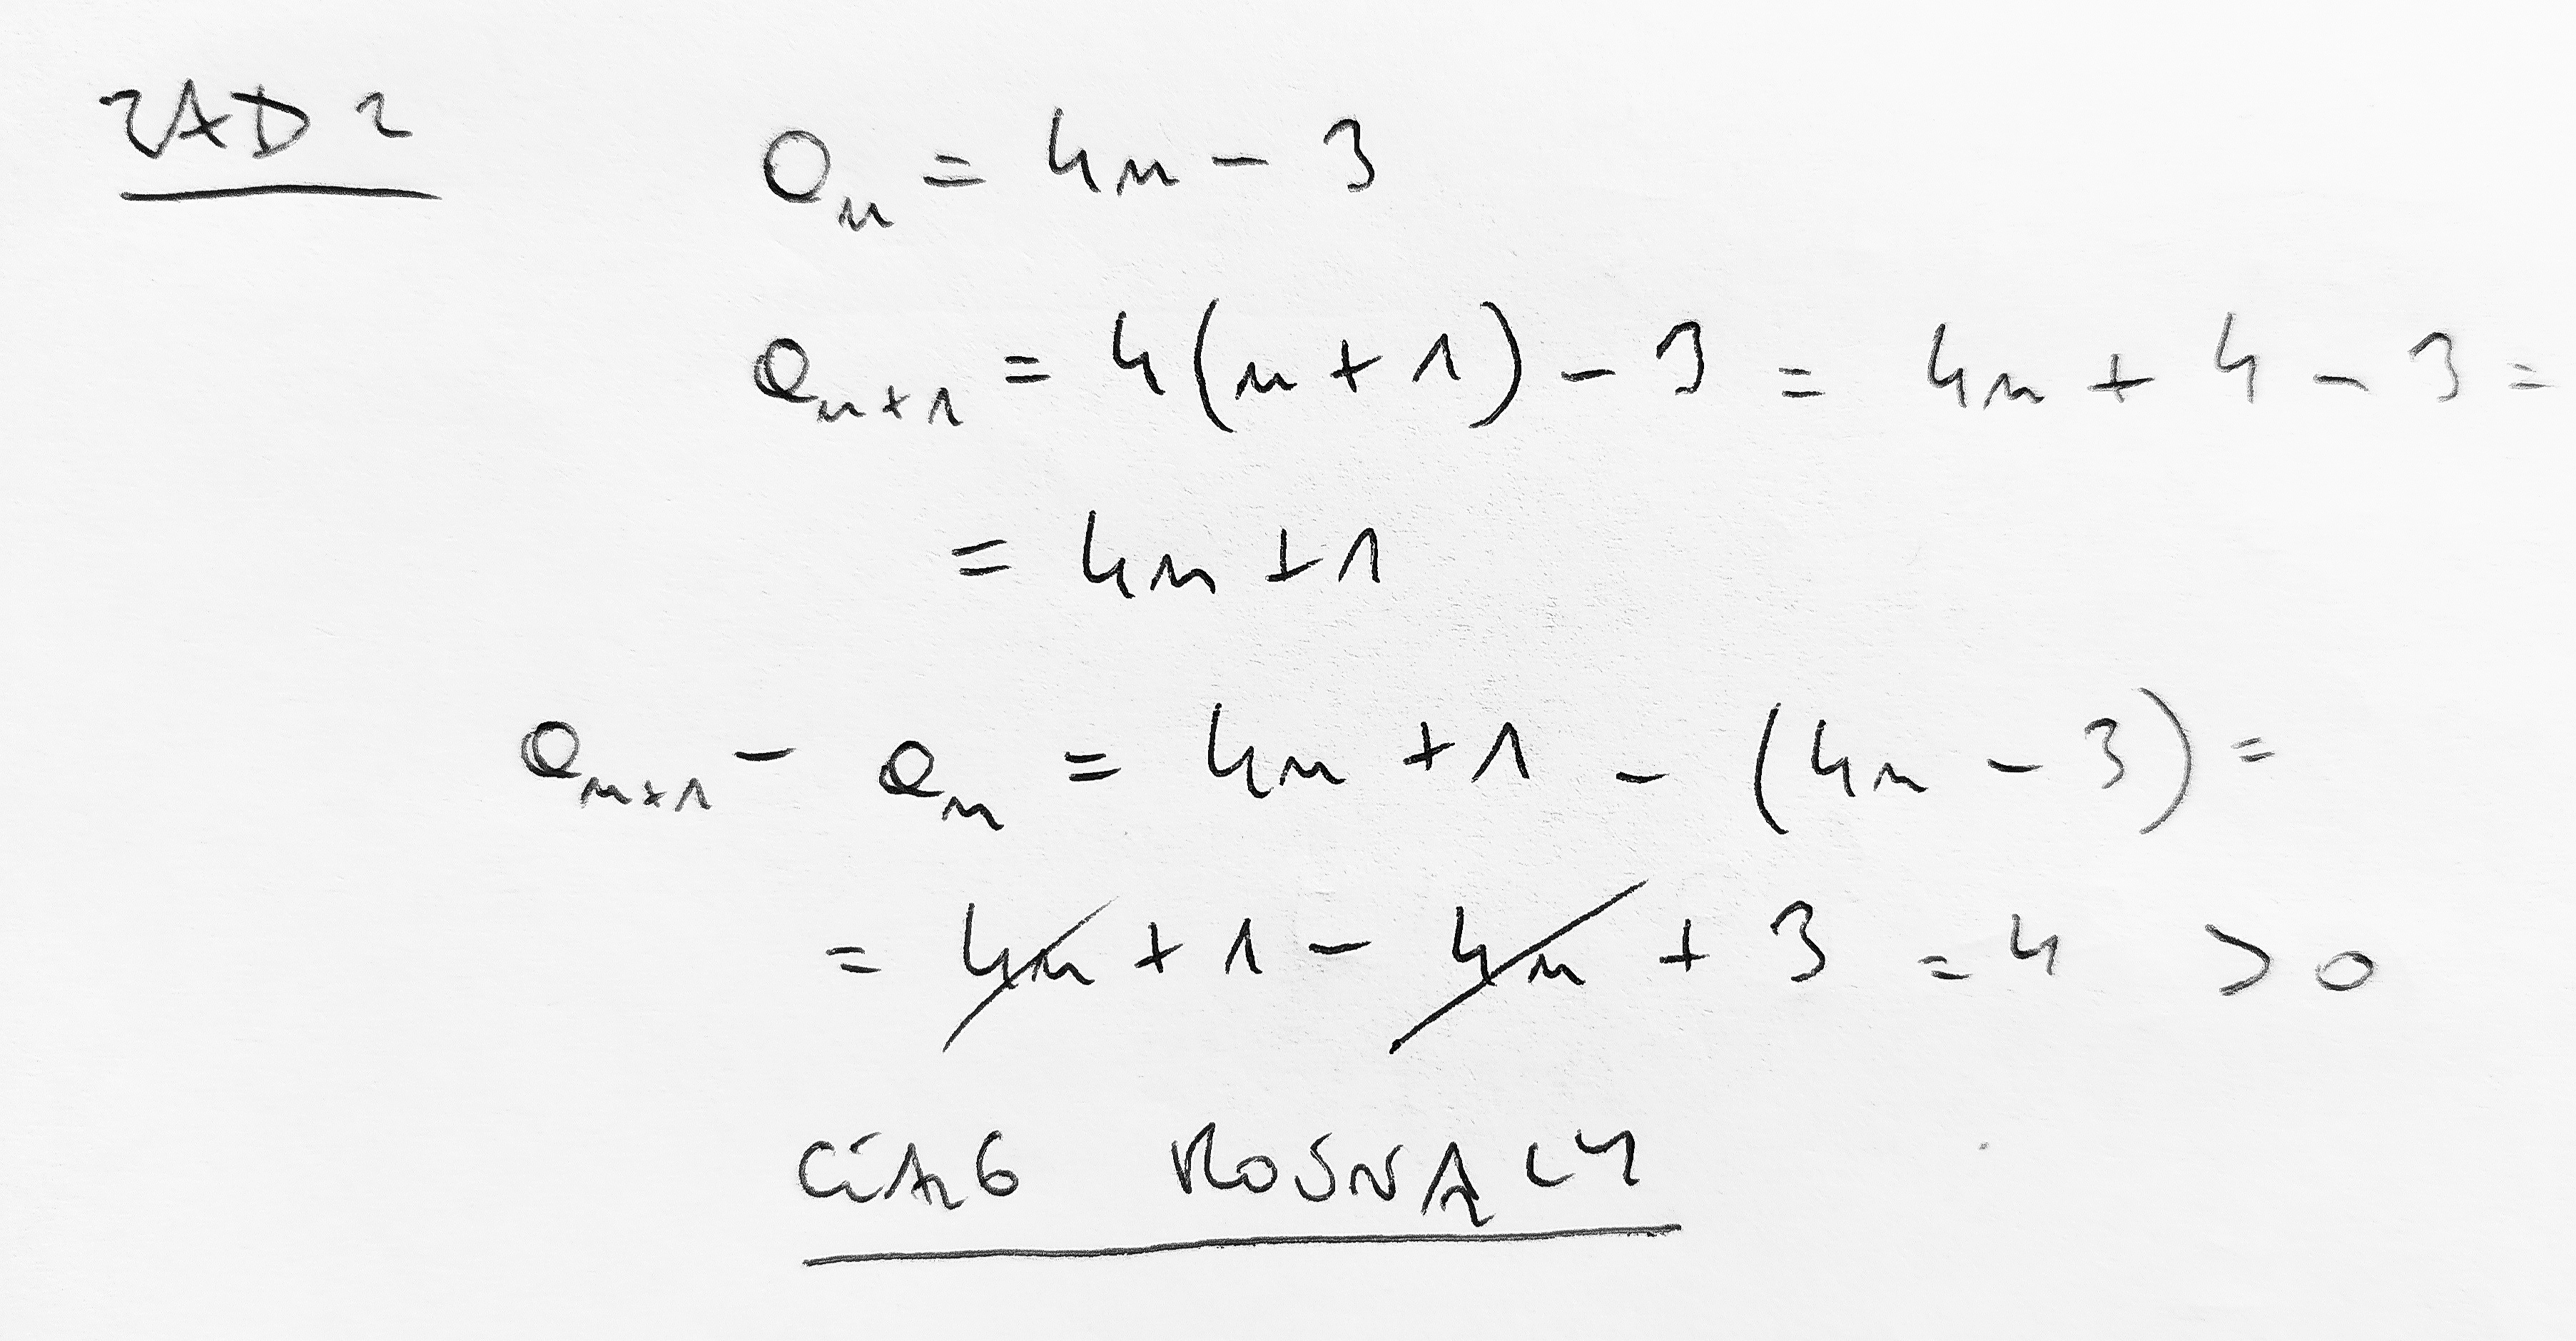 ZAD 2
aₙ = 4n - 3
aₙ₊₁ = 4(n + 1) - 3 = 4n + 4 - 3 =
= 4n + 1
aₙ₊₁ - aₙ = 4n + 1 - (4n - 3) =
= 4n + 1 - 4n + 3 = 4 > 0
CIĄG ROSNĄCY